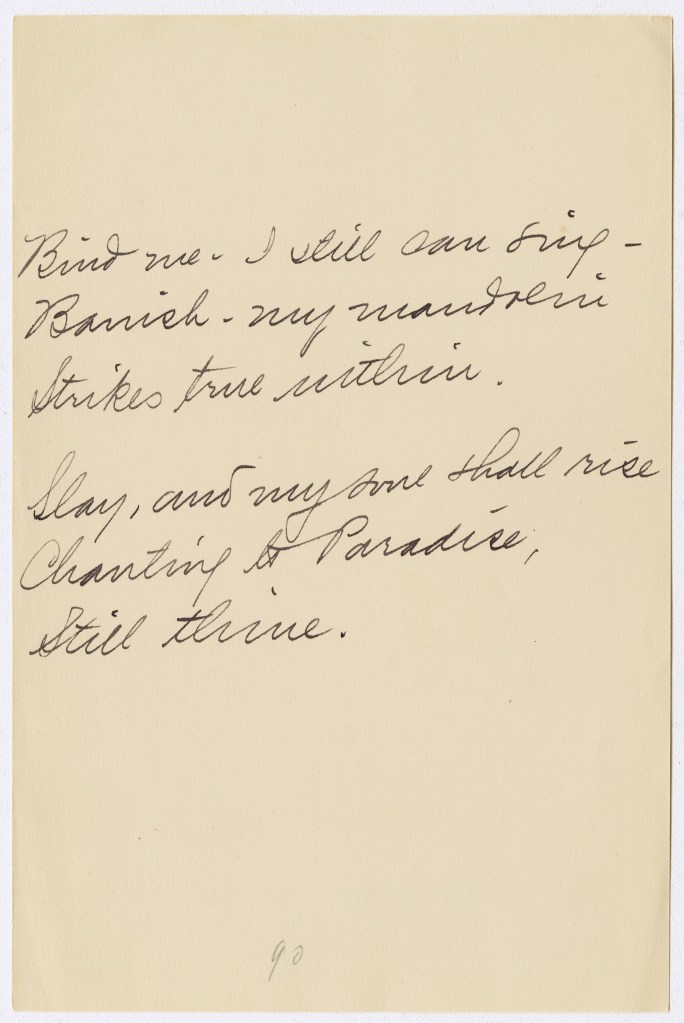 Bind me - I still can sing -
Banish - my mandolin
Strikes true within.
Slay, and my soul shall rise
Chanting to Paradise,
Still thine.
90